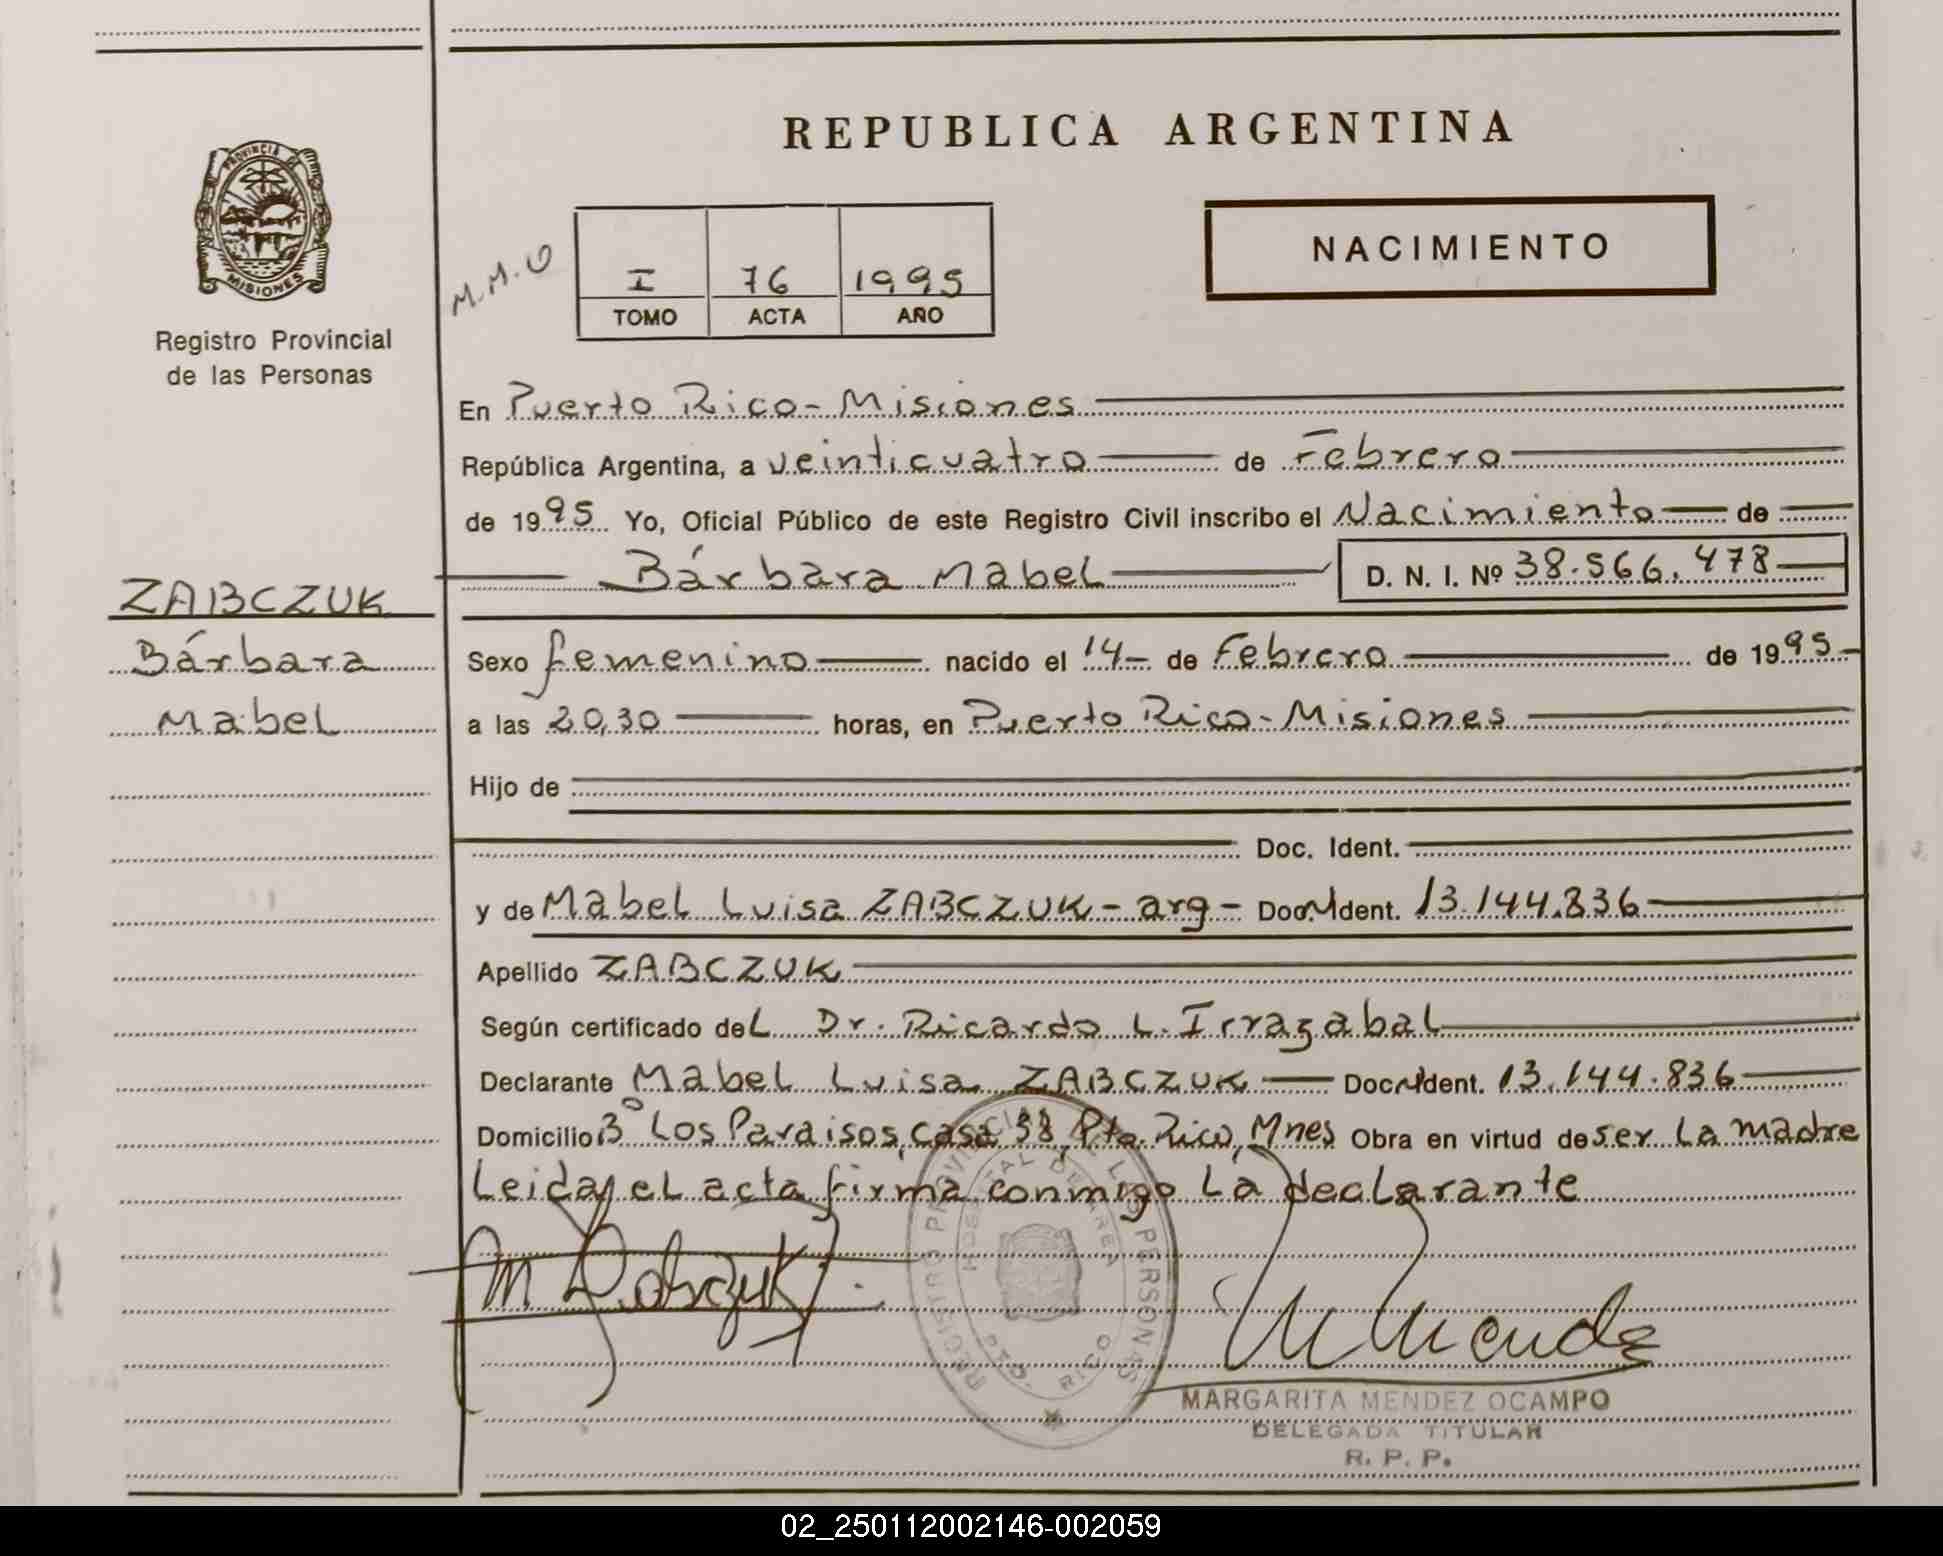 REPUBLICA ARGENTINA
PROVINCIA DE
MISIONES
Registro Provincial
de las Personas
M.M.O
I 76 1995
TOMO ACTA AÑO
NACIMIENTO
En Puerto Rico - Misiones
República Argentina, a veinticuatro de Febrero
de 1995 Yo, Oficial Público de este Registro Civil inscribo el Nacimiento de
Bárbara Mabel D. N. I. Nº 38.566.478
ZABCZUK
Bárbara
Mabel
Sexo femenino nacido el 14 - de Febrero de 1995
a las 20,30 horas, en Puerto Rico - Misiones
Hijo de
Doc. Ident.
y de Mabel Luisa ZABCZUK - arg - Doc. Ident. 13.144.836
Apellido ZABCZUK
Según certificado del Dr. Ricardo L. Irrazabal
Declarante Mabel Luisa ZABCZUK Doc. Ident. 13.144.836
Domicilio Bº Los Paraisos, casa 38, Pto. Rico, Mnes Obra en virtud de ser la madre
Leida el acta firma conmigo la declarante
M Zabczuk
REGISTRO PROVINCIAL DE LAS PERSONAS
HOSPITAL DE AREA
PTO. RICO
MARGARITA MENDEZ OCAMPO
DELEGADA TITULAR
R. P. P.
02_250112002146-002059